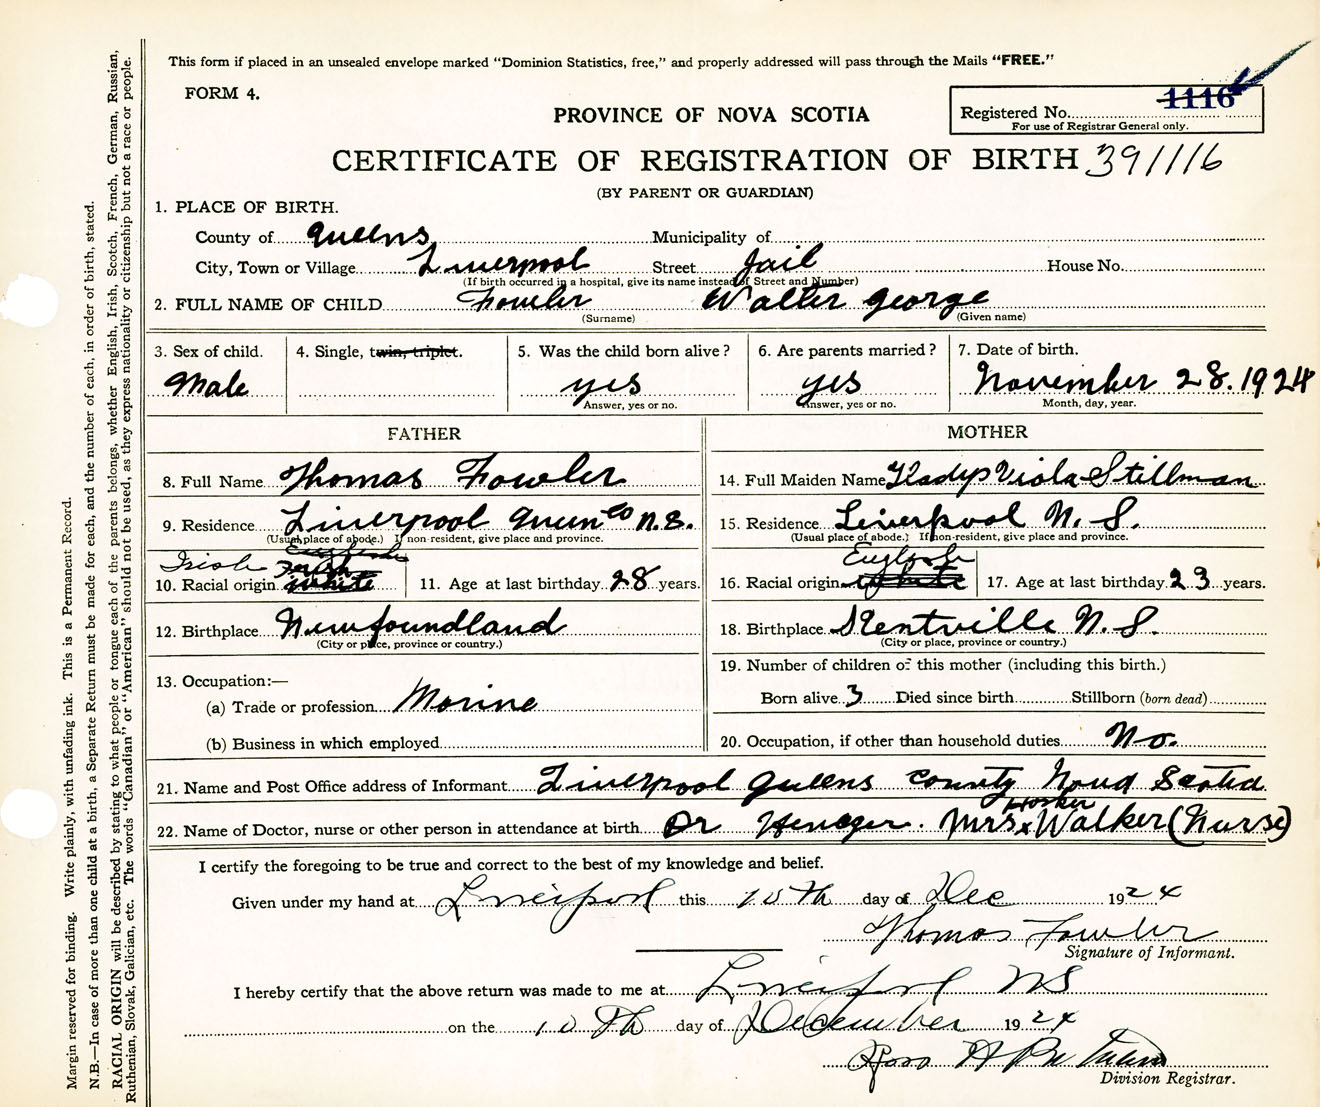 This form if placed in an unsealed envelope marked "Dominion Statistics, free," and properly addressed will pass through the Mails "FREE."
FORM 4.
1116
PROVINCE OF NOVA SCOTIA
Registered No.
For use of Registrar General only.
CERTIFICATE OF REGISTRATION OF BIRTH 391116
(BY PARENT OR GUARDIAN)
1. PLACE OF BIRTH.
County of Queens Municipality of
City, Town or Village Liverpool Street Jail House No.
(If birth occurred in a hospital, give its name instead of Street and Number)
2. FULL NAME OF CHILD Fowler Walter George
(Surname) (Given name)
3. Sex of child. 4. Single, twin, triplet. 5. Was the child born alive? 6. Are parents married? 7. Date of birth.
Male yes yes November 28. 1924
Answer, yes or no. Answer, yes or no. Month, day, year.
FATHER MOTHER
8. Full Name Thomas Fowler 14. Full Maiden Name Gladys Viola Stillman
9. Residence Liverpool Queen Co N.S. 15. Residence Liverpool N.S.
(Usual place of abode.) If non-resident, give place and province. (Usual place of abode.) If non-resident, give place and province.
English English
Irish
10. Racial origin white 11. Age at last birthday 28 years. 16. Racial origin white 17. Age at last birthday 23 years.
12. Birthplace Newfoundland 18. Birthplace Kentville N.S.
(City or place, province or country.) (City or place, province or country.)
19. Number of children of this mother (including this birth.)
13. Occupation:—
(a) Trade or profession Morine Born alive 3 Died since birth Stillborn (born dead)
(b) Business in which employed 20. Occupation, if other than household duties No.
21. Name and Post Office address of Informant Liverpool Queens County Nova Scotia
22. Name of Doctor, nurse or other person in attendance at birth Dr. Mrs. Walker (Nurse)
I certify the foregoing to be true and correct to the best of my knowledge and belief.
Given under my hand at Liverpool this 10th day of Dec 1924
Thomas Fowler
Signature of Informant.
I hereby certify that the above return was made to me at Liverpool NS
on the 10th day of December 1924
Division Registrar.
Margin reserved for binding. Write plainly, with unfading ink. This is a Permanent Record.
N.B.—In case of more than one child at a birth, a Separate Return must be made for each, and the number of each, in order of birth, stated.
RACIAL ORIGIN will be described by stating to what people or tongue each of the parents belongs, whether English, Irish, Scotch, French, German, Russian,
Ruthenian, Slovak, Galician, etc. The words "Canadian" or "American" should not be used, as they express nationality or citizenship but not a race or people.